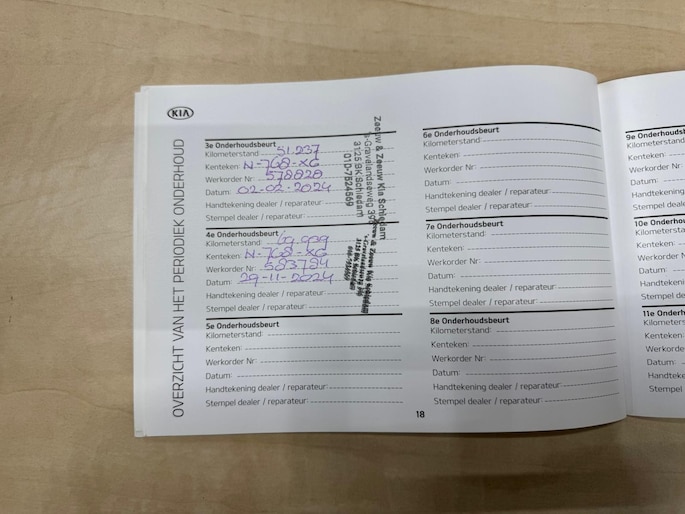 KIA
OVERZICHT VAN HET PERIODIEK ONDERHOUD
3e Onderhoudsbeurt
Kilometerstand 51.237
Kenteken: N-768-XG
Werkorder Nr: 578828
Datum: 02-02-2024
Handtekening dealer / reparateur:
Stempel dealer / reparateur:
Zeeuw & Zeeuw Kia Schiedam
's-Gravelandseweg 379
3125 BK Schiedam
010-7524569
4e Onderhoudsbeurt
Kilometerstand:
Kenteken: N-768-XG
Werkorder Nr: 583784
Datum: 29-11-2024
Handtekening dealer / reparateur:
Stempel dealer / reparateur:
5e Onderhoudsbeurt
Kilometerstand:
Kenteken:
Werkorder Nr:
Datum:
Handtekening dealer / reparateur:
Stempel dealer / reparateur:
18
6e Onderhoudsbeurt
Kilometerstand:
Kenteken:
Werkorder Nr:
Datum:
Handtekening dealer / reparateur:
Stempel dealer / reparateur:
7e Onderhoudsbeurt
Kilometerstand:
Kenteken:
Werkorder Nr:
Datum:
Handtekening dealer / reparateur:
Stempel dealer / reparateur:
8e Onderhoudsbeurt
Kilometerstand:
Kenteken:
Werkorder Nr:
Datum:
Handtekening dealer / reparateur:
Stempel dealer / reparateur:
9e Onderhoudsb
Kilometerstand
Kenteken:
Werkorder N
Datum:
Handtekening
Stempel dea
10e Onderho
Kilometersta
Kenteken:
Werkorder
Datum:
Handtekeni
Stempel de
11e Onderh
Kilometers
Kenteken:
Werkorde
Datum:
Handteke
Stempel